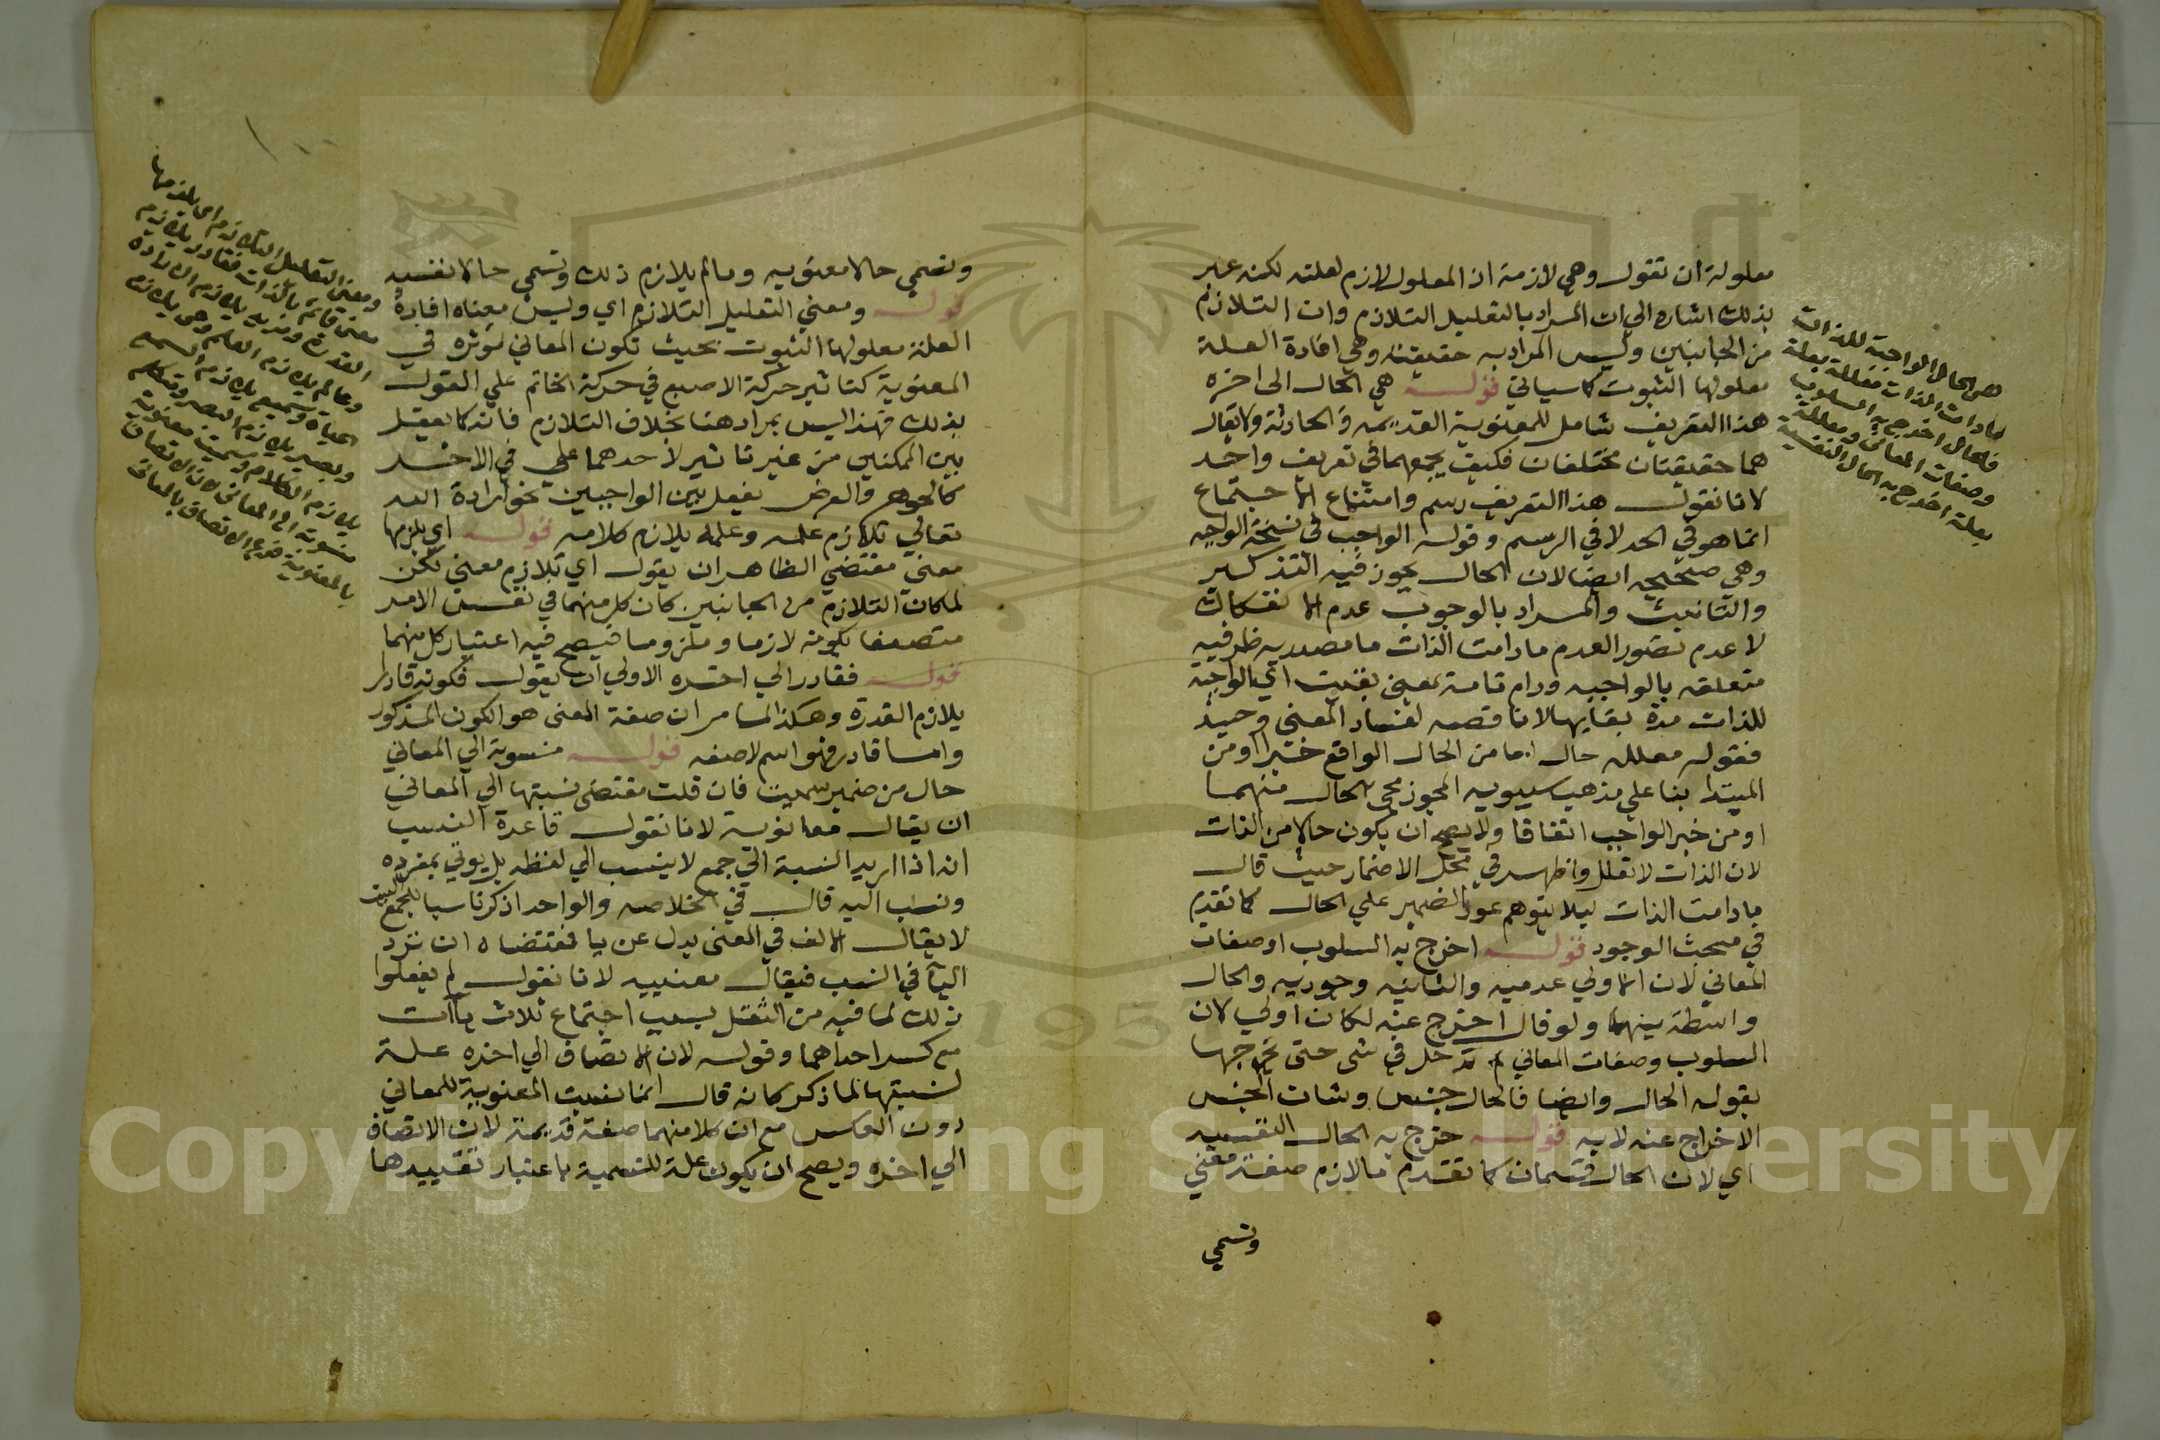 معلولة ان تقول وهي لازمة اذ المعلول لازم لعلته لكنه عبر
بذلك اشارة الي ان المراد بالتعليل التلازم وان التلازم
من الجانبين وليس المراد به حقيقته وهي افادة العلة
معلولها الثبوت كما سياتي قوله هي الحال الى اخره
هذا التعريف شامل للمعنوية القديمه والحادثة ولا يقال
هما حقيقتان مختلفتان فكيف يجمعهما في تعريف واحد
لانا نقول هذا التعريف رسم وامتناع الاجتماع
انما هو في الحد لا في الرسم وقوله الواجب في نسخة الواجبه
وهي صحيحه ايضا لان الحال يجوز فيه التذكير
والتانيث والمراد بالوجوب عدم الانفكاك
لا عدم تصور العدم مادامت الذات ما مصدريه ظرفيه
متعلقه بالواجبه ودام تامة بمعني بقيت اي الواجبة
للذات مدة بقايها لا ناقصه لفساد المعني وحينئذ
فقوله معلله حال اما من الحال الواقع خبرا او من
المبتدا بنا علي مذهب سيبويه المجوز مجي الحال منهما
او من خبر الواجب اتفاقا ولا يصح ان يكون حالا من الذات
لان الذات لا تعلل واظهر في محل الاضمار حيث قال
مادامت الذات ليلا يتوهم عود الضمير علي الحال كما تقدم
في مبحث الوجود قوله اخرج به السلوب او صفات
المعاني لان الاولي عدميه والثانيه وجوديه والحال
واسطة بينهما ولو قال اخرج عنه لكان اولي لان
السلوب وصفات المعاني لم تدخل في شي حتى تخرجها
بقوله الحال وايضا فالحال جنس وشان الجنس
الاخراج عنه لا به قوله خرج به الحال النفسيه
اي لان الحال قسمان كما تقدم ما لازم صفة معني
وتسمي
هي الحال الواجبة للذات
مادامت الذات معللة بعلة
فالحال اخرج به السلوب
وصفات المعاني ومعللة
بعلة اخرج به الحال النفسية
وتسمي حالا معنويه وما لم يلازم ذلك وتسمي حالا نفسيه
قوله ومعني التعليل التلازم اي وليس معناه افادة
العلة معلولها الثبوت بحيث تكون المعاني مؤثره في
المعنوية كتاثير حركة الاصبع في حركة الخاتم علي القول
بذلك فهذا ليس بمراد هنا بخلاف التلازم فانه كما يعقل
بين الممكنين من غير تاثير لاحدهما علي في الاخر
كالجوهر والعرض يفعل بين الواجبين نحو ارادة الله
تعالي تلازم علمه وعلمه يلازم كلامه قوله اي يلزمها
معني مقتضي الظاهر ان يقول اي تلازم معني لكن
لما كان التلازم من الجانبين كان كل منهما في نفس الامر
متصفا بكونه لازما وملزوما فيصح فيه اعتبار كل منهما
قوله فقادر الي اخره الاولي ان يقول فكونه قادرا
يلازم القدرة وهكذا لما مر ان صفة المعني هو الكون المذكور
واما قادر فهو اسم لا صفه قوله منسوبة الي المعاني
حال من ضمير سميت فان قلت مقتضى نسبتها الي المعاني
ان يقال معانويه لانا نقول قاعدة النسب
انه اذا اريد النسبة الي جمع لا ينسب الي لفظه بل يوتي بمفرده
وينسب اليه قال في الخلاصه والواحد اذكر ناسبا للجمع
لا يقال الالف في المعنى بدل عن يا فمقتضاه ان ترد
اليا في النسب فيقال معنييه لانا نقول لم يفعلوا
ذلك لما فيه من الثقل بسبب اجتماع ثلاث ياآت
مع كسر احداهما وقوله لان الاتصاف الي اخره علة
لنسبتها لما ذكر كانه قال انما نسبت المعنوية للمعاني
دون العكس مع ان كلا منهما صفة قديمة لان الاتصاف
الي اخره ويصح ان يكون علة للتسمية باعتبار تقييدها
ومعني التعليل التلازم اي يلزمها
معنى قائم بالذات فقادر يلازم
القدرة ومريد يلازم الارادة
وعالم يلازم العلم وحي يلازم
الحياة وسميع يلازم السمع
وبصير يلازم البصر ومتكلم
يلازم الكلام وسميت معنوية
منسوبة الى المعاني لان الاتصاف
بالمعنوية فرع الاتصاف بالمعاني